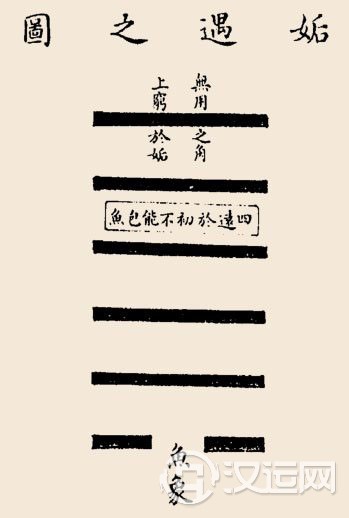 姤遇之圖
無用之角
上窮於姤
四遠於初不能包魚
魚象
汉运网